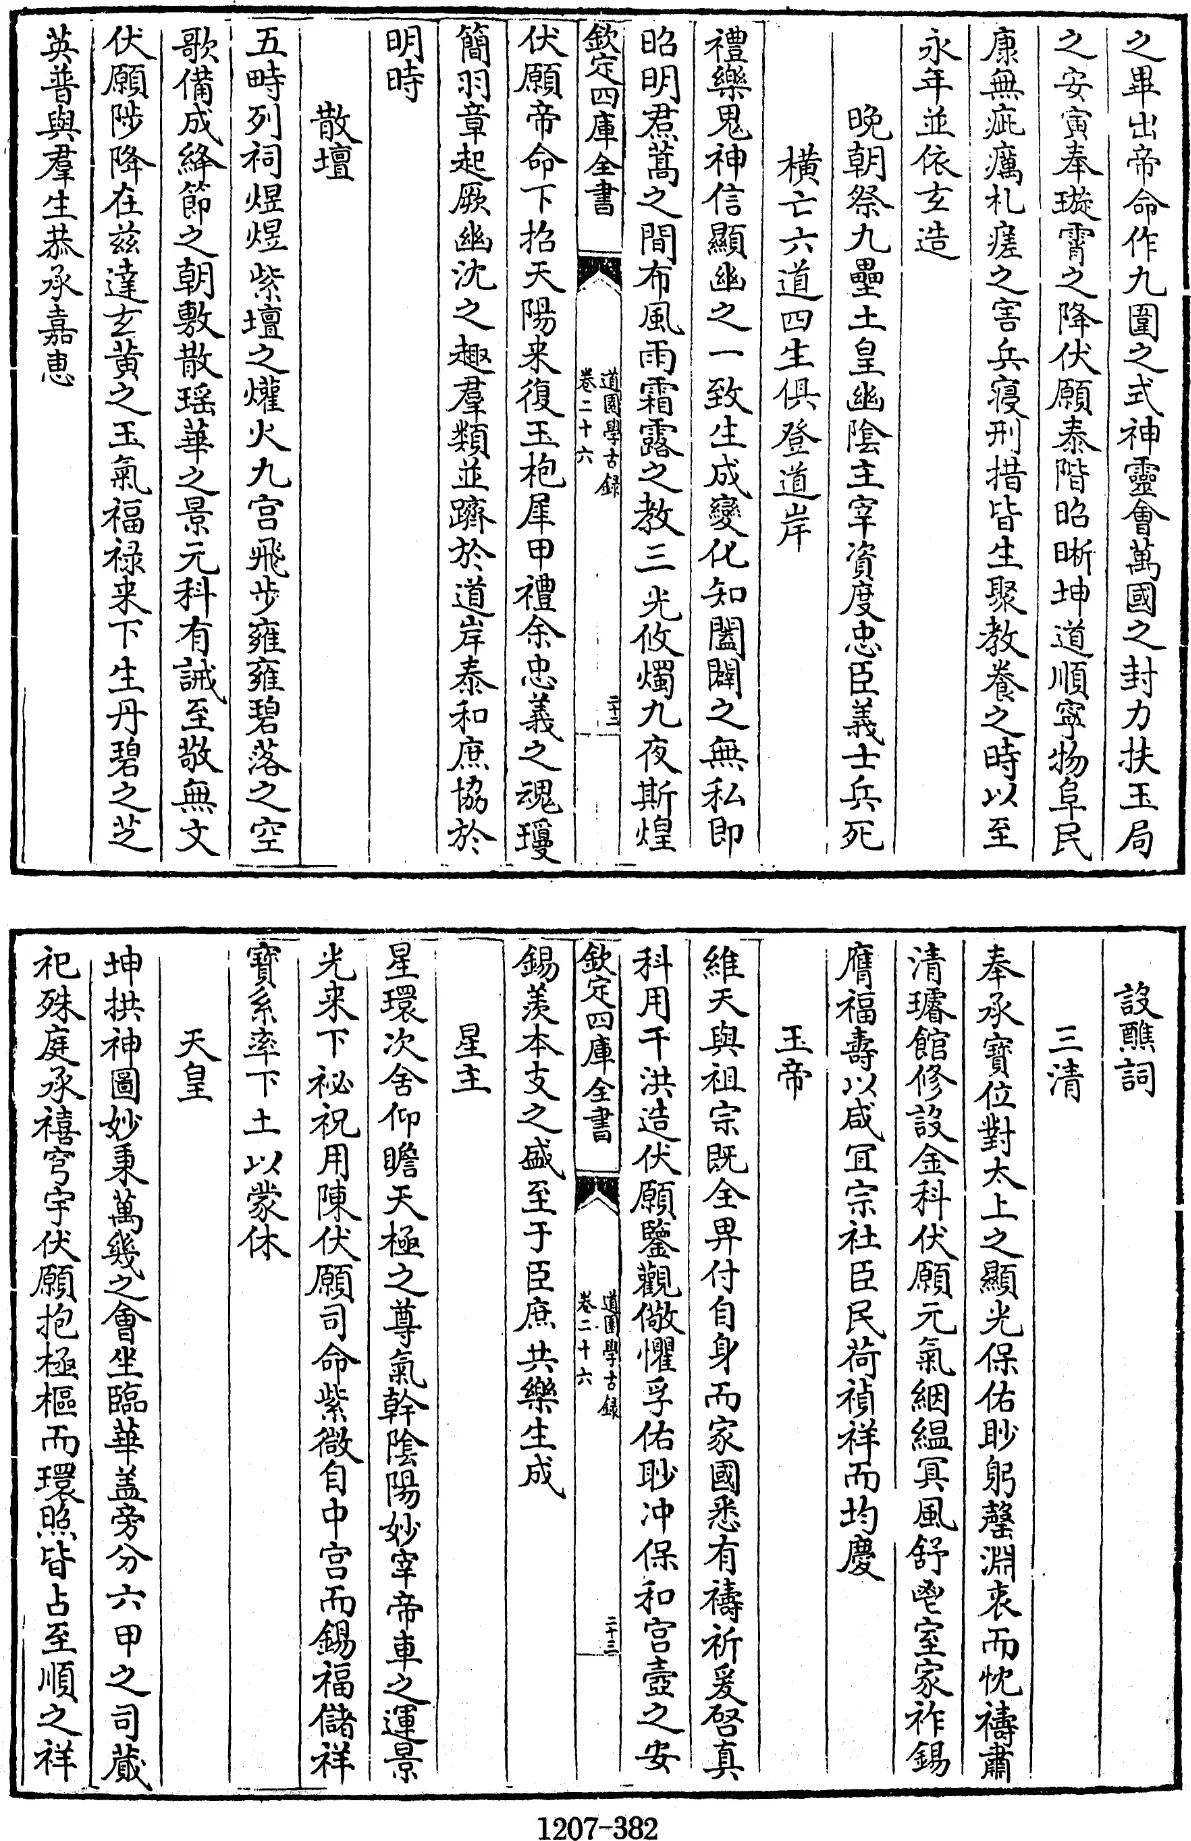 之畢出帝命作九圍之式神靈會萬國之封力扶玉局
之安寅奉璇霄之降伏願泰階昭晰坤道順寧物阜民
康無疵癘札瘥之害兵寢刑措皆生聚教養之時以至
永年並依玄造
晚朝祭九壘土皇幽陰主宰資度忠臣義士兵死
橫亡六道四生俱登道岸
禮樂鬼神信顯幽之一致生成變化知闔闢之無私即
昭明焄蒿之間布風雨霜露之教三光攸燭九夜斯煌
欽定四庫全書
道園學古錄
卷二十六
二十二
伏願帝命下招天陽来復玉枹犀甲禮余忠義之魂瓊
簡羽章起厥幽沈之趣羣類並躋於道岸泰和庶協於
明時
散壇
五畤列祠煜煜紫壇之爟火九宫飛步雍雍碧落之空
歌備成絳節之朝敷散瑶華之景元科有誡至敬無文
伏願陟降在兹達玄黄之玉氣福禄来下生丹碧之芝
英普與羣生恭承嘉恵
設醮詞
三清
奉承寶位對太上之顯光保佑眇躬罄淵衷而忱禱肅
清璿館修設金科伏願元氣絪緼冥風舒鬯室家祚錫
膺福壽以咸宜宗社臣民荷禎祥而均慶
玉帝
維天與祖宗既全畀付自身而家國悉有禱祈爰啓真
科用干洪造伏願鑒觀儆懼孚佑眇冲保和宫壼之安
欽定四庫全書
道園學古錄
卷二十六
二十三
錫羡本支之盛至于臣庶共樂生成
星主
星環次舍仰瞻天極之尊氣斡陰陽妙宰帝車之運景
光来下祕祝用陳伏願司命紫微自中宫而錫福儲祥
寶系率下土以蒙休
天皇
坤拱神圖妙秉萬幾之會坐臨華盖旁分六甲之司蕆
祀殊庭承禧穹宇伏願抱極樞而環照皆占至順之祥
1207-382